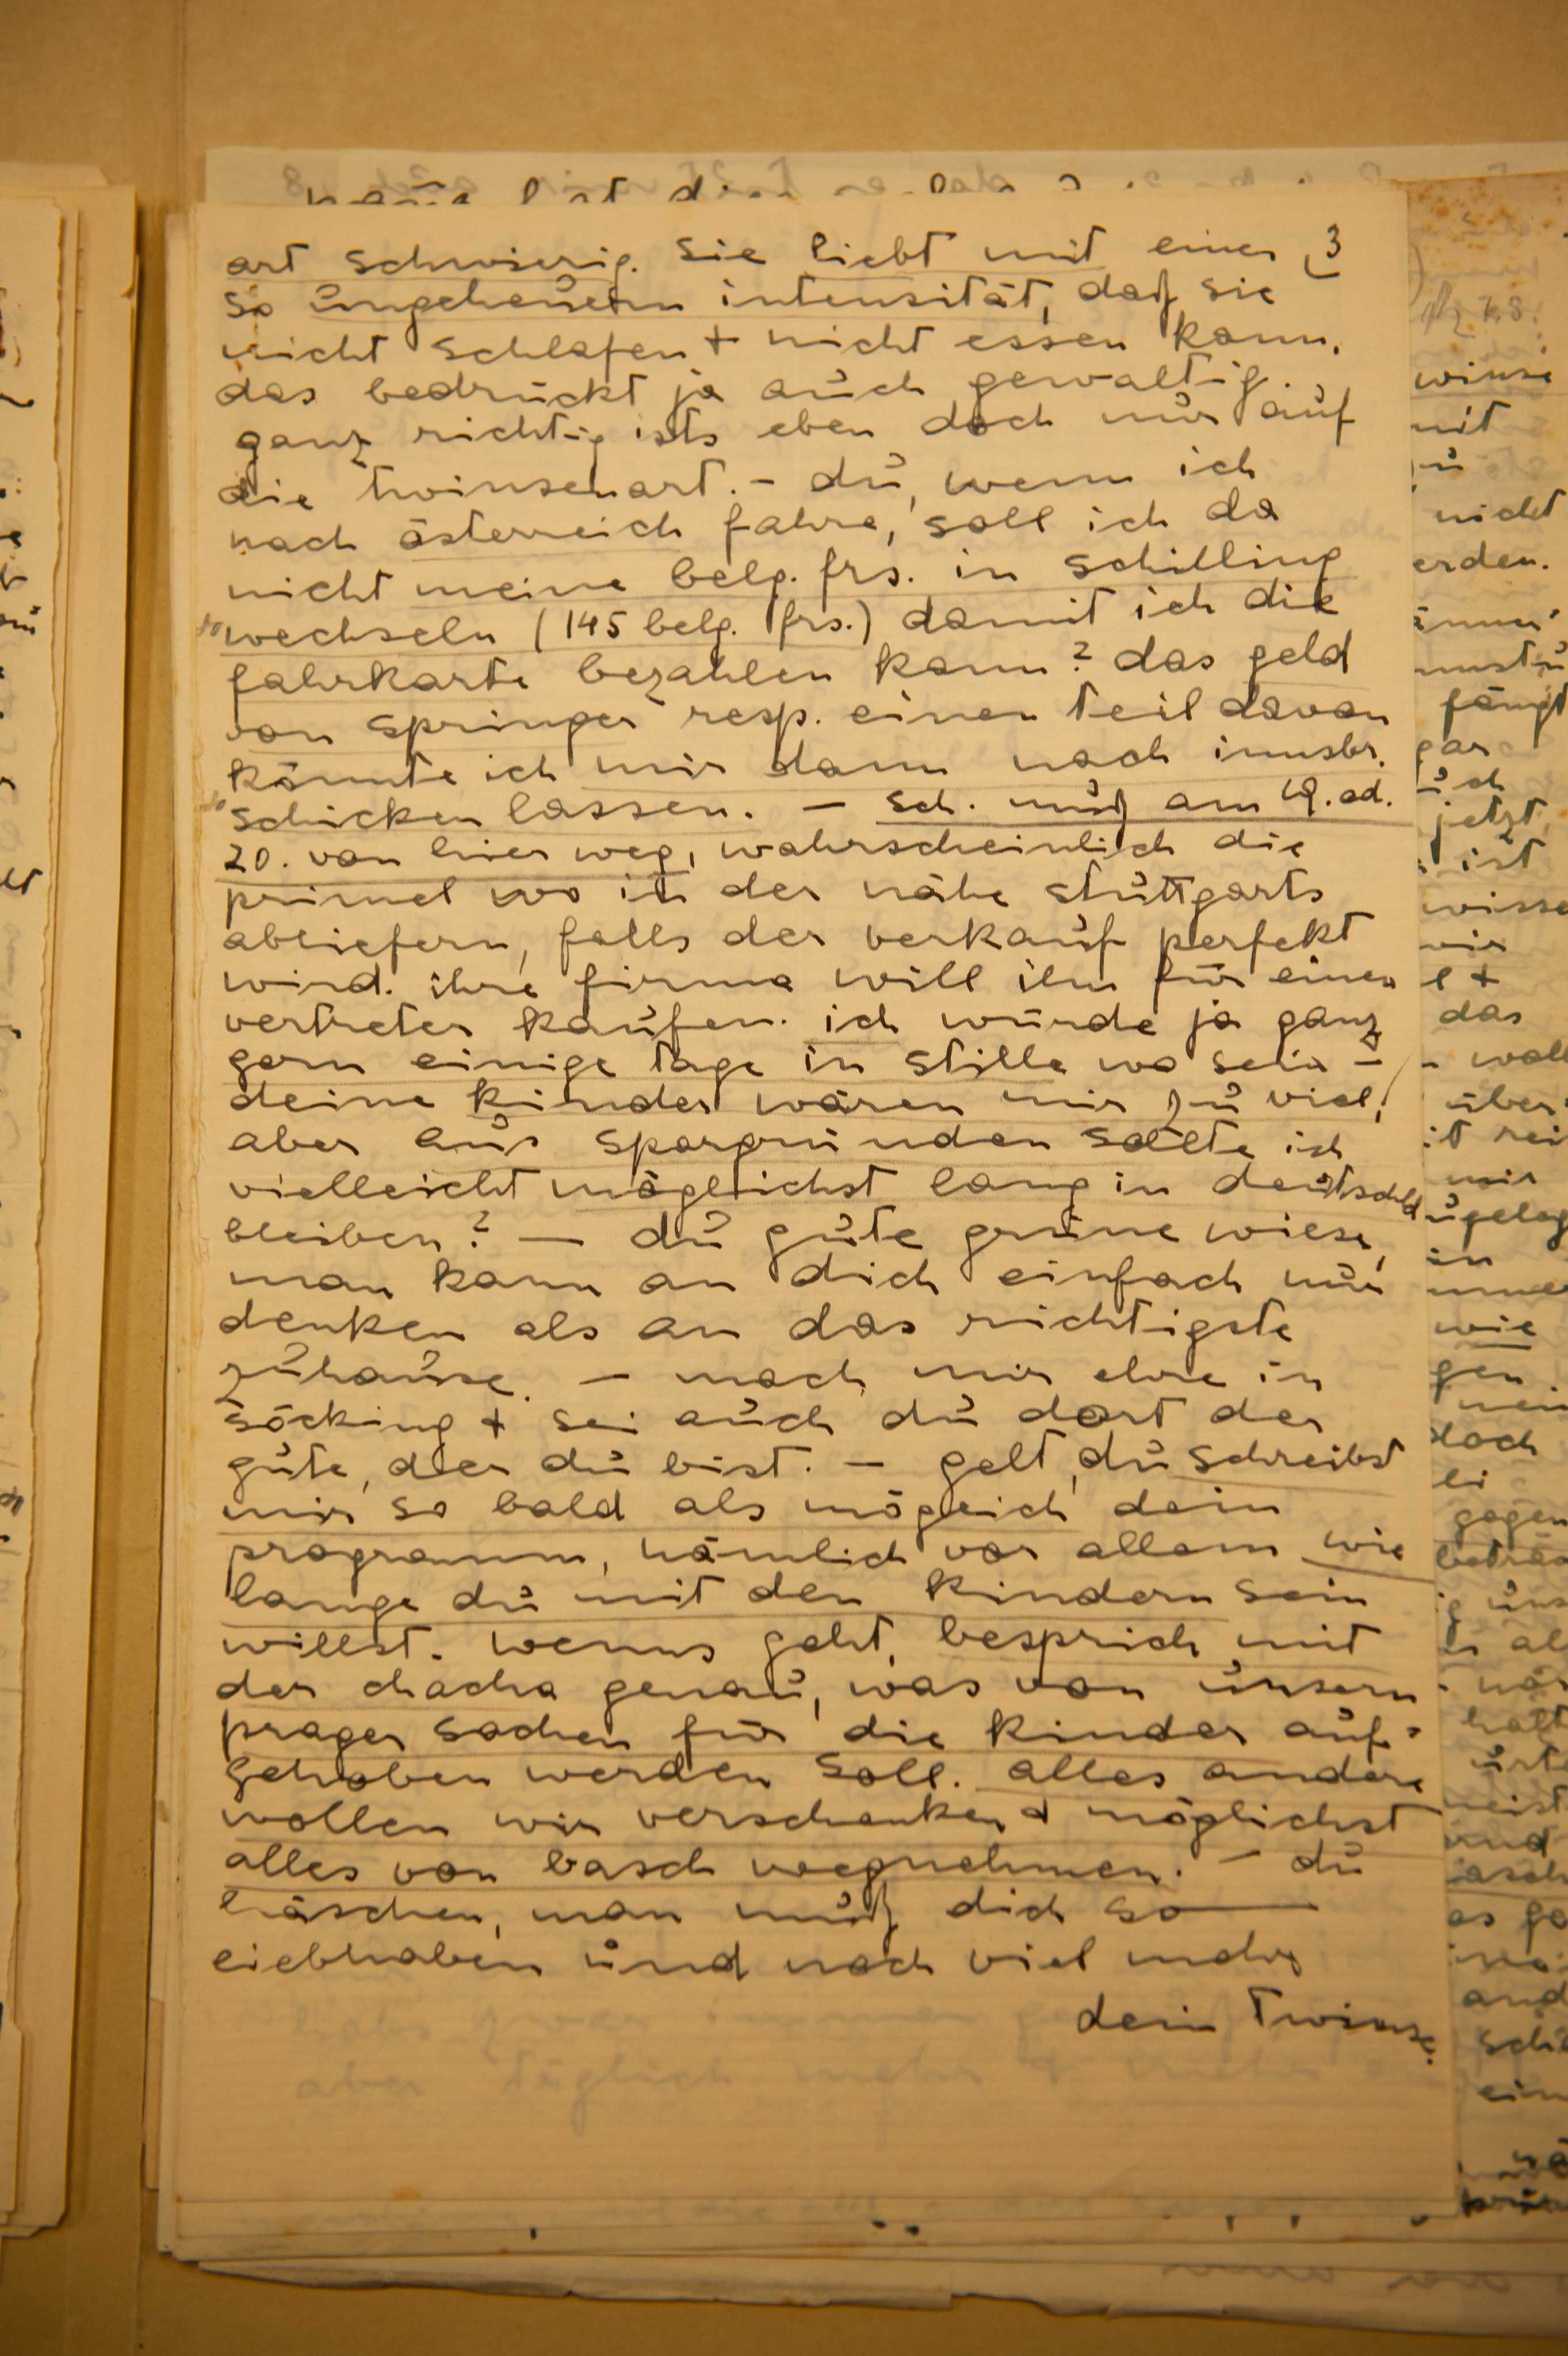 3
art schwierig. sie liebt mit einer
so ungeheuern intensität, daß sie
nicht schlafen + nicht essen kann.
das bedrückt ja auch gewaltig.
ganz richtig ists eben doch nur auf
die twinsenart. – du, wenn ich
nach österreich fahre, soll ich da
nicht meine belg. frs. in schilling
wechseln (145 belg. frs.) damit ich die
fahrkarte bezahlen kann? das geld
von springer resp. einen teil davon
könnte ich mir dann nach innsbr.
schicken lassen. – sch. muß am 19. od.
20. von hier weg, wahrscheinlich die
primel wo in der nähe stuttgarts
abliefern, falls der verkauf perfekt
wird. ihre firma will ihn für einen
vertreter kaufen. ich würde ja ganz
gern einige tage in stille wo sein –
deine kinder wären mir zu viel,
aber aus spargründen sollte ich
vielleicht möglichst lang in deutschld
bleiben? – du gute grüne wiese,
man kann an dich einfach nur
denken als an das richtigste
zuhause. – mach mir ehre in
söcking + sei auch du dort der
gute, der du bist. – gelt, du schreibst
mir so bald als möglich dein
programm, nämlich vor allem wie
lange du mit den kindern sein
willst. wenns geht, besprich mit
der chacha genau, was von unsern
prager sachen für die kinder auf-
gehoben werden soll. alles andere
wollen wir verschenken + möglichst
alles von basch wegnehmen. – du
häschen, man muß dich so
liebhaben und noch viel mehr
dein Twinse.
winse
mit
zu
nicht
erden.
fängt
gar
jetzt
ist
wisse
wir
l +
das
über
mir
in
wie
gen.
doch
gegen
uns
al
und
asch
ein